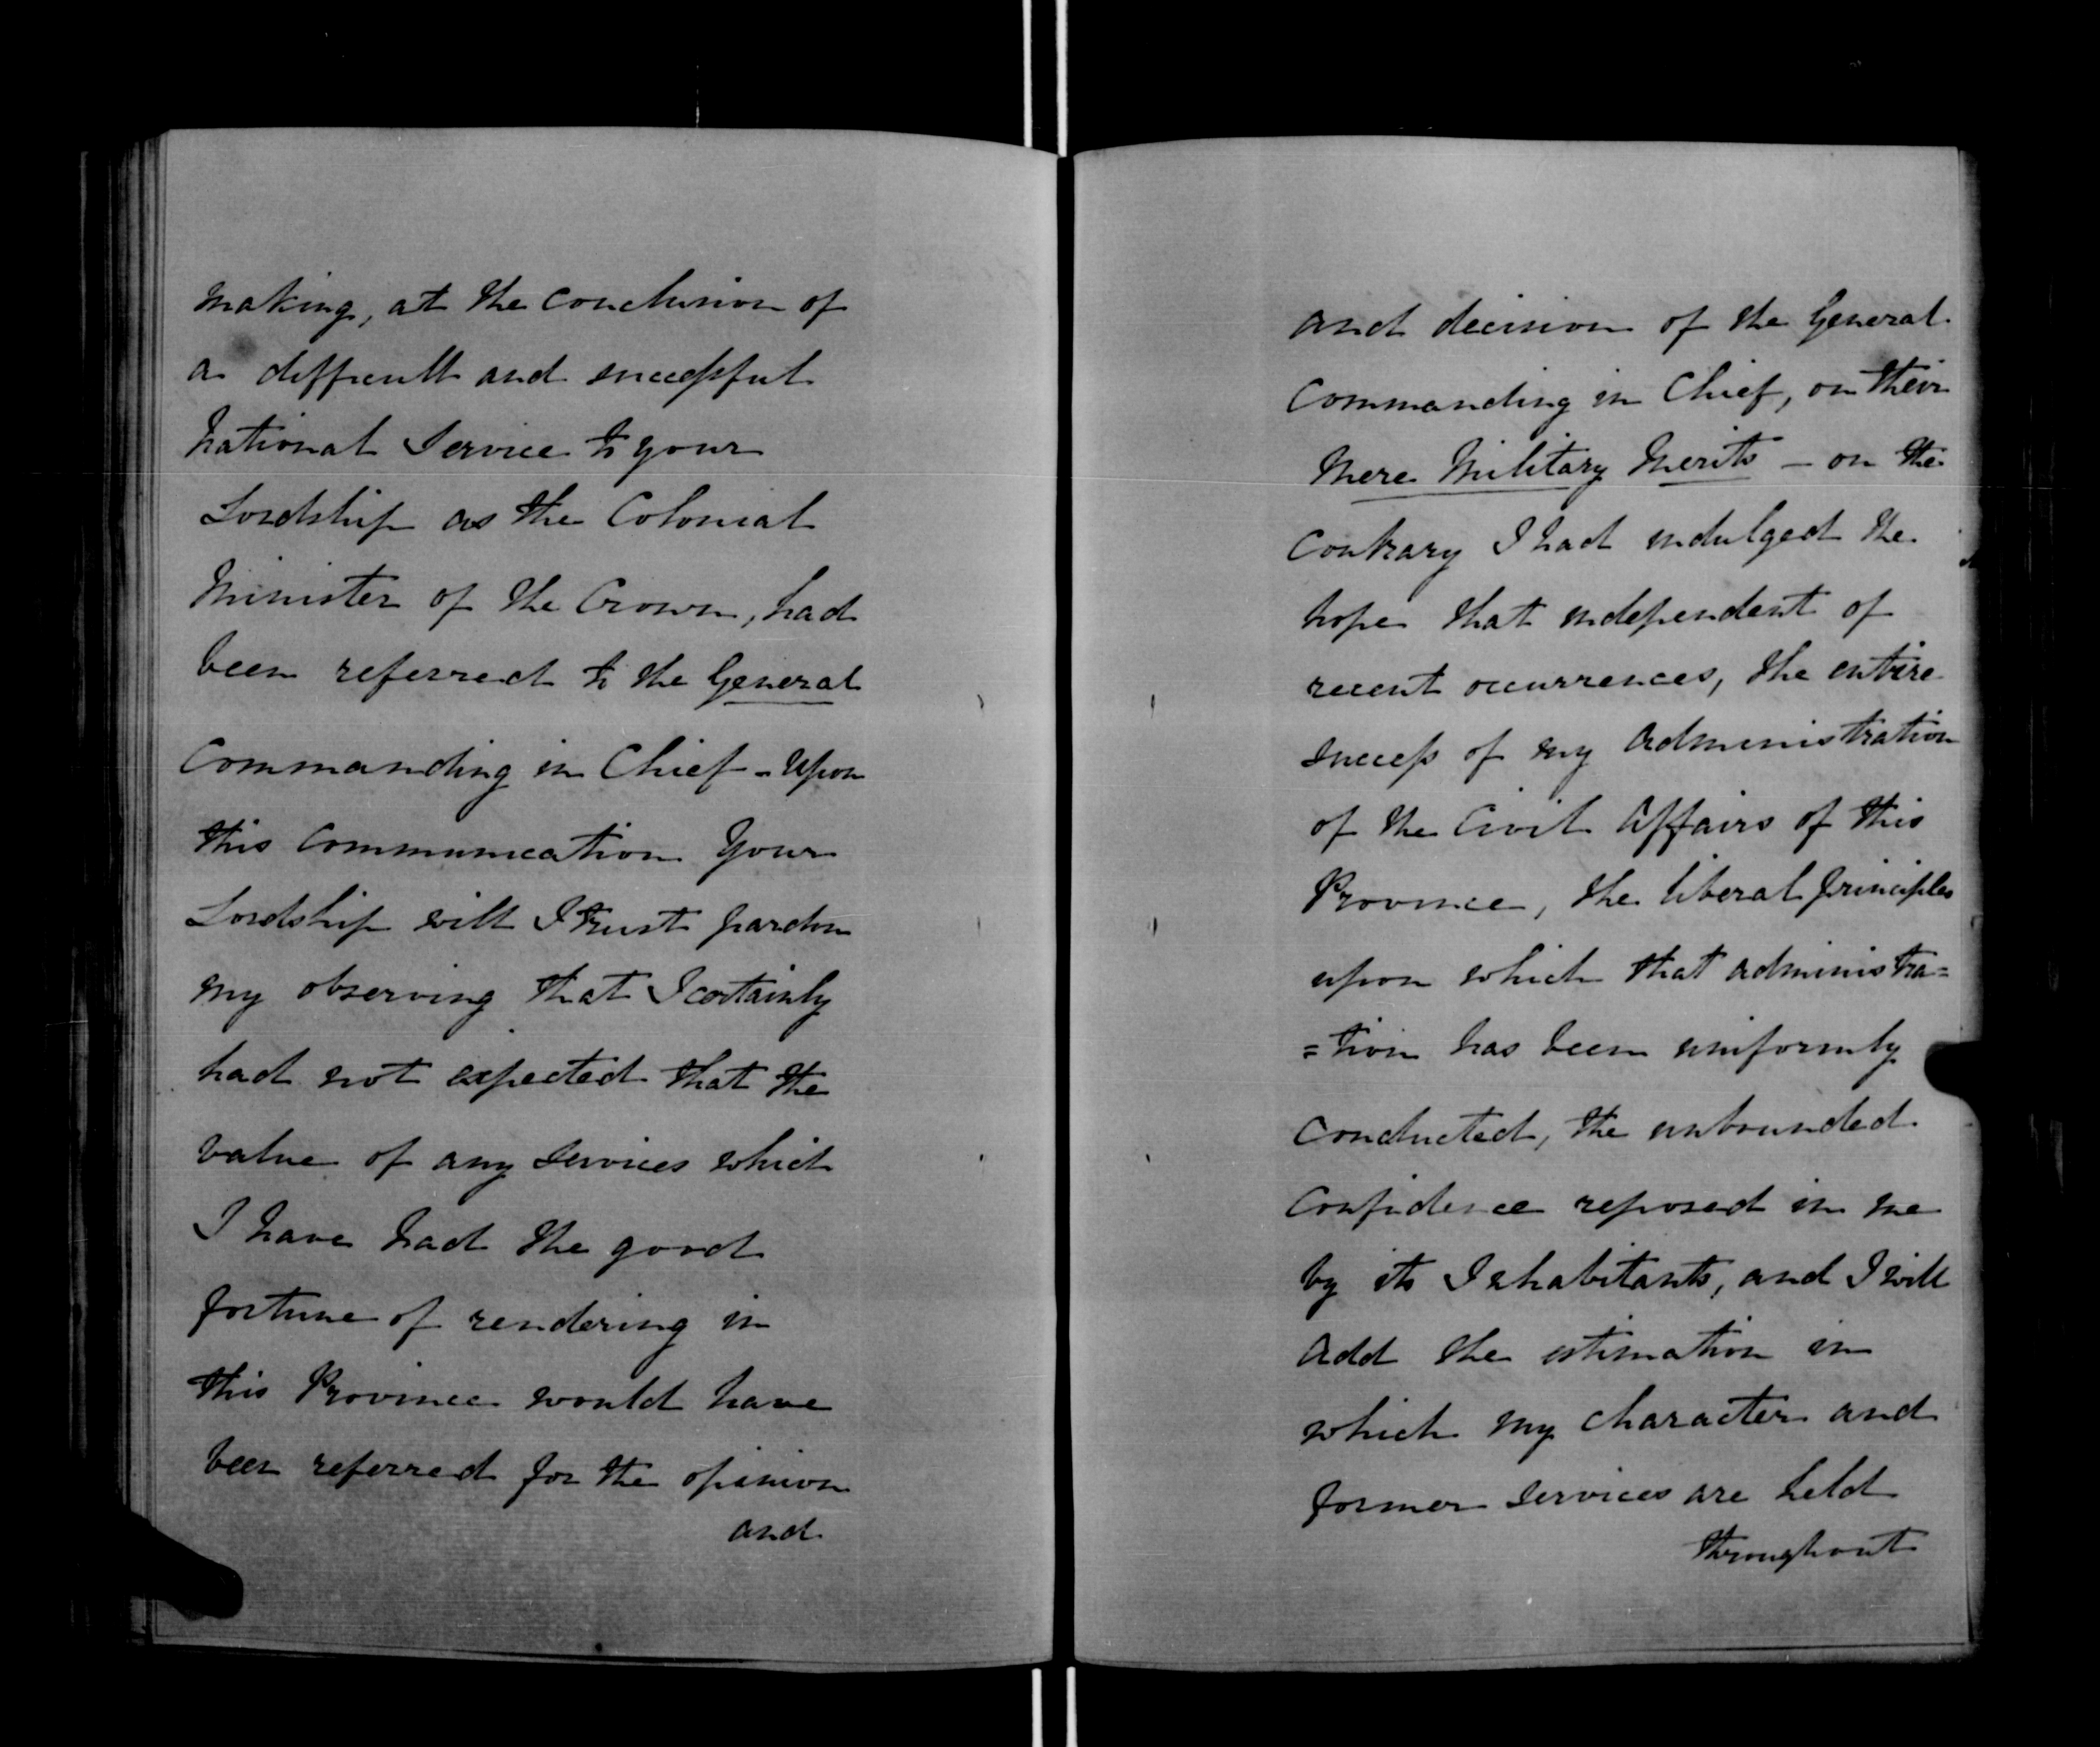 making, at the conclusion of
a difficult and successful
national Service to your
Lordship as the Colonial
Minister of the Crown, had
been referred to the General
Commanding in Chief - Upon
this communication Your
Lordship will I trust pardon
my observing that I certainly
had not expected that the
value of any services which
I have had the good
fortune of rendering in
this Province would have
been referred for the opinion
and
and decision of the General
Commanding in Chief, on their
mere Military Merits - on the
contrary I had indulged the
hope that independent of
recent occurrences, the entire
success of my administration
of the Civil Affairs of this
Province, the liberal principles
upon which that administra=
=tion has been uniformly
conducted, the unbounded
confidence reposed in me
by its Inhabitants, and I will
add the estimation in
which my character and
former services are held
throughout